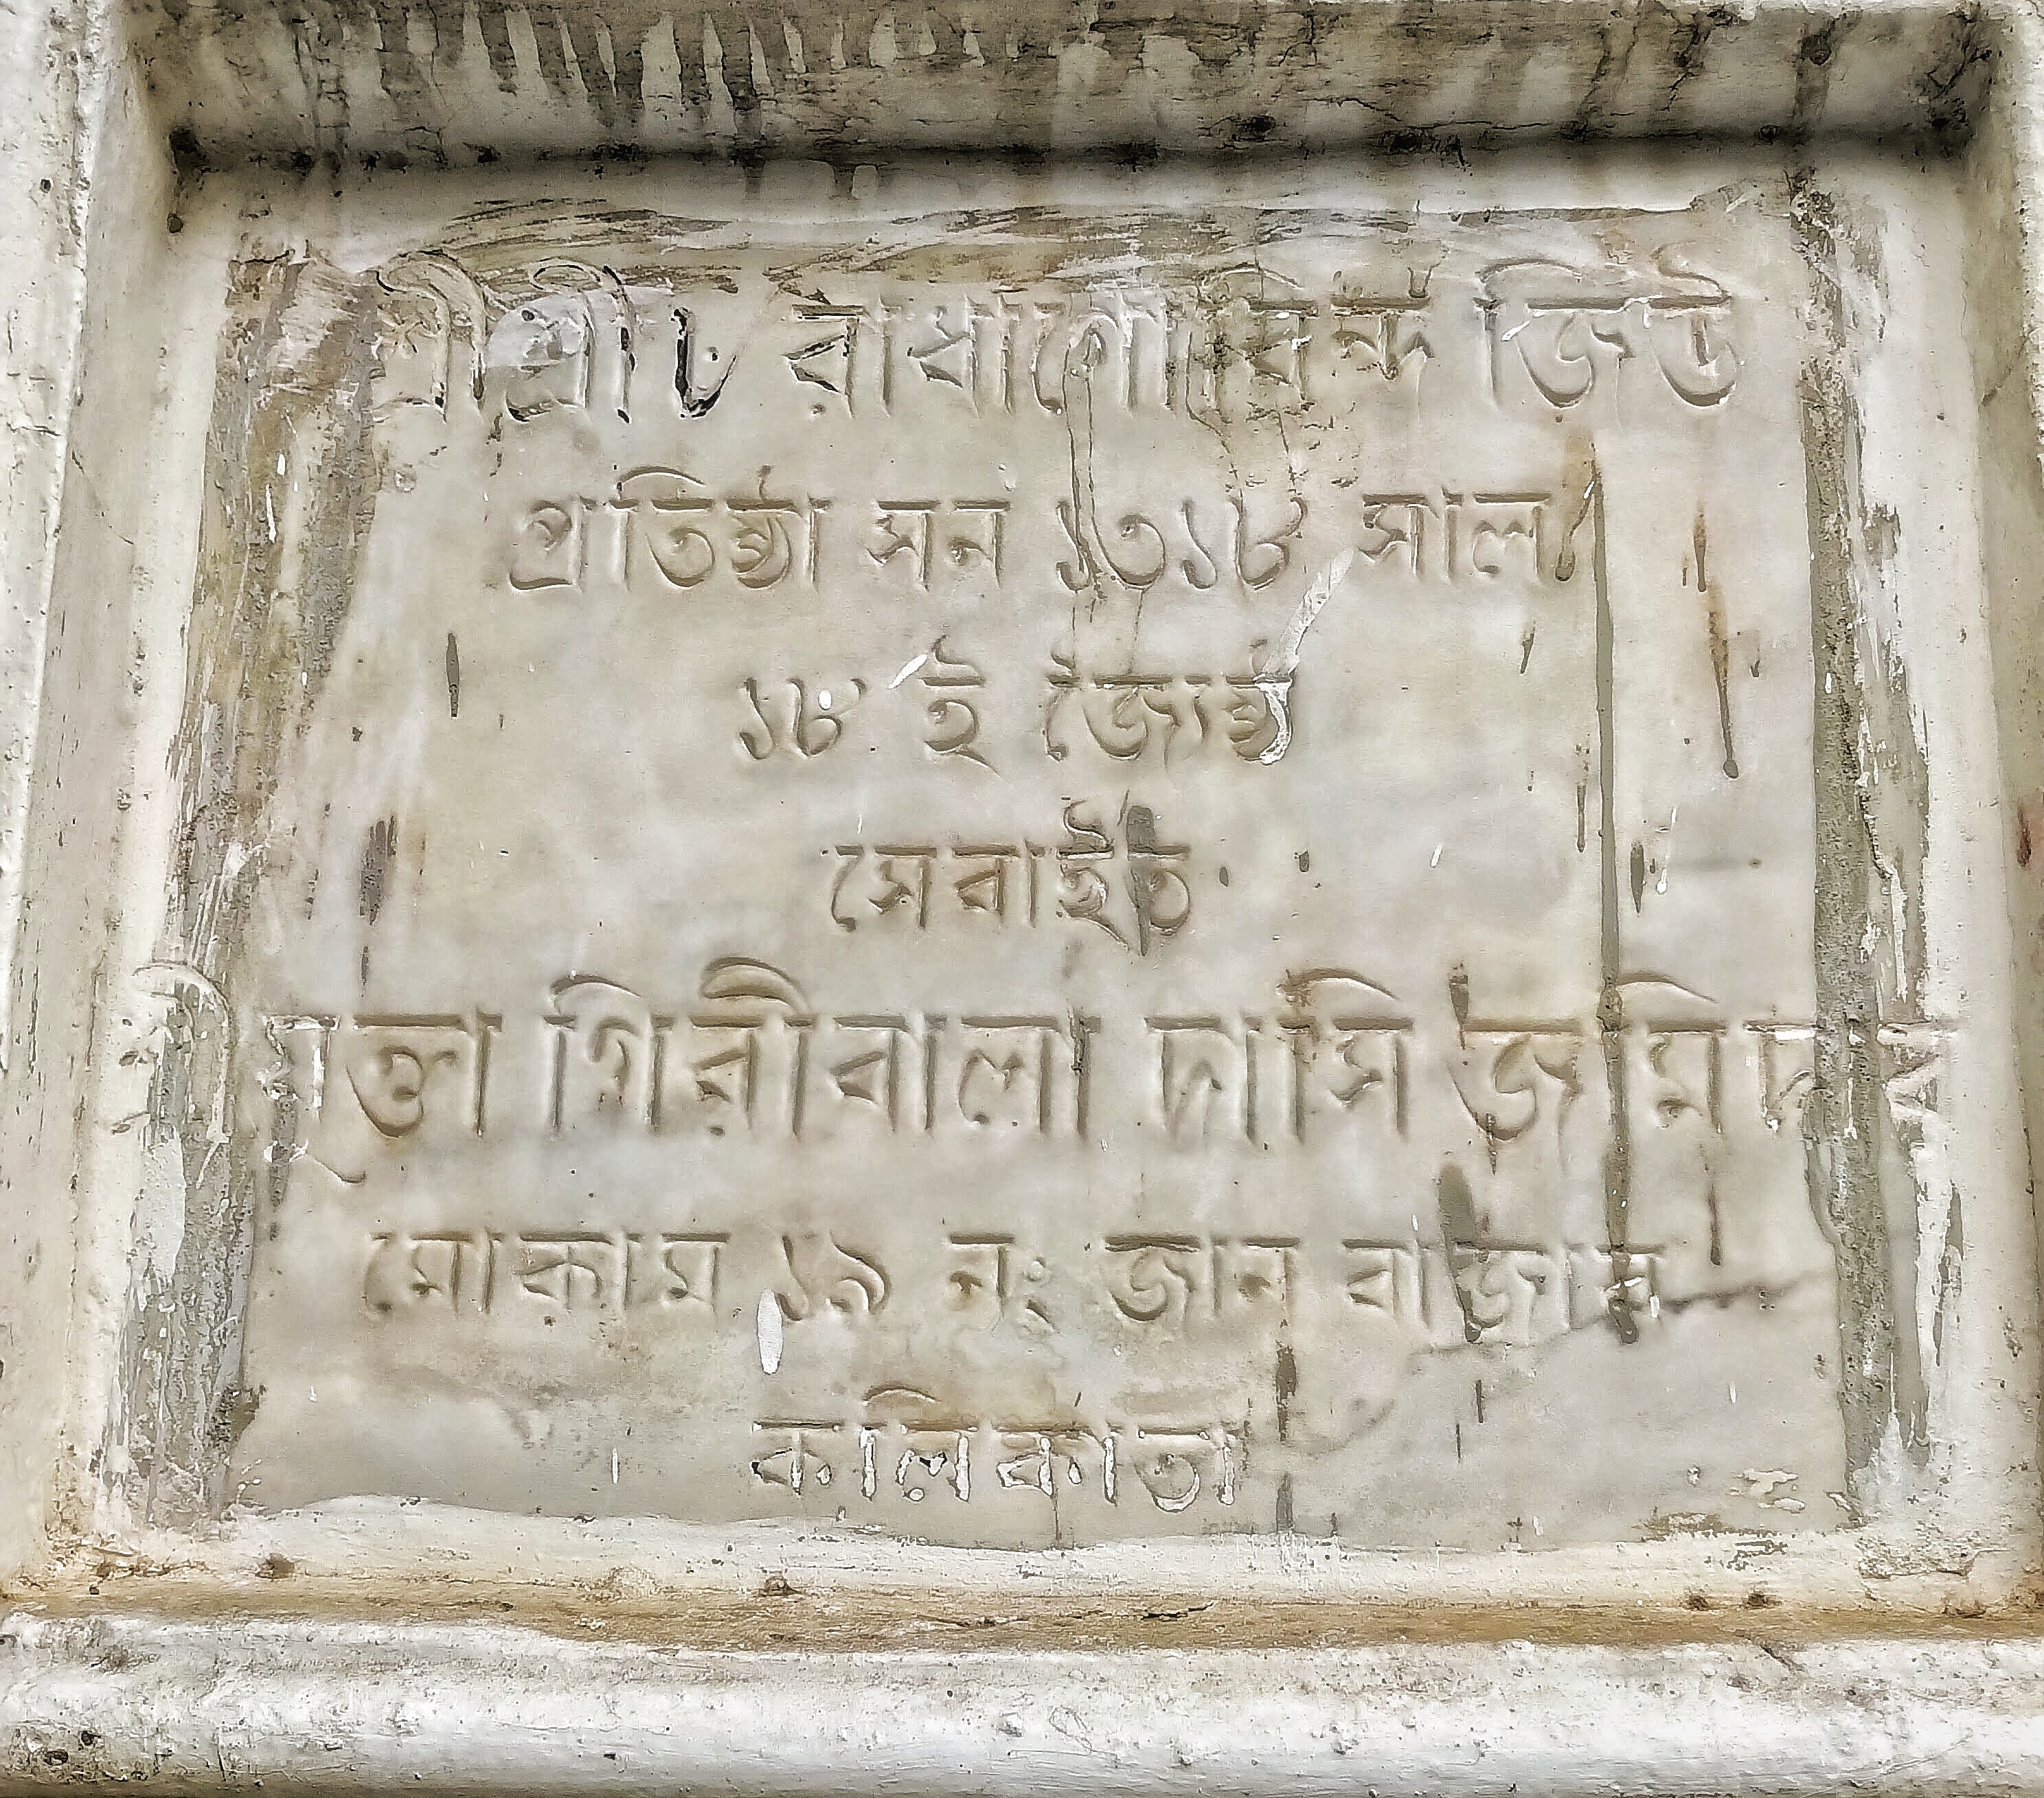 শ্রীশ্রী৺ রাধাগোবিন্দ জিউ
প্রতিষ্ঠা সন ১৩১৮ সাল
১৮ ই জ্যৈষ্ঠ
সেবাইত
শ্রীযুক্তা গিরীবালা দাসি জমিদার
মোকাম ১৯ নং জান বাজার
কলিকাতা